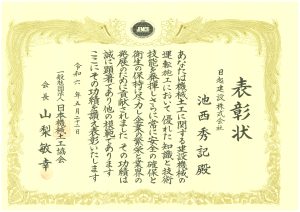 JEMCA
表彰状
日起建設株式会社
池西秀記殿
あなたは機械土工に関する建設機械の
運転施工において優れた知識と技術
技能を発揮しさらに常に安全の確保と
衛生の保持に尽力し企業の繁栄と業界の
発展のために貢献されましたその功績は
誠に顕著であり他の模範であります
ここにその功績を讃え表彰いたします
令和六年五月二十二日
一般社団法人日本機械土工協会
会長 山梨敏幸